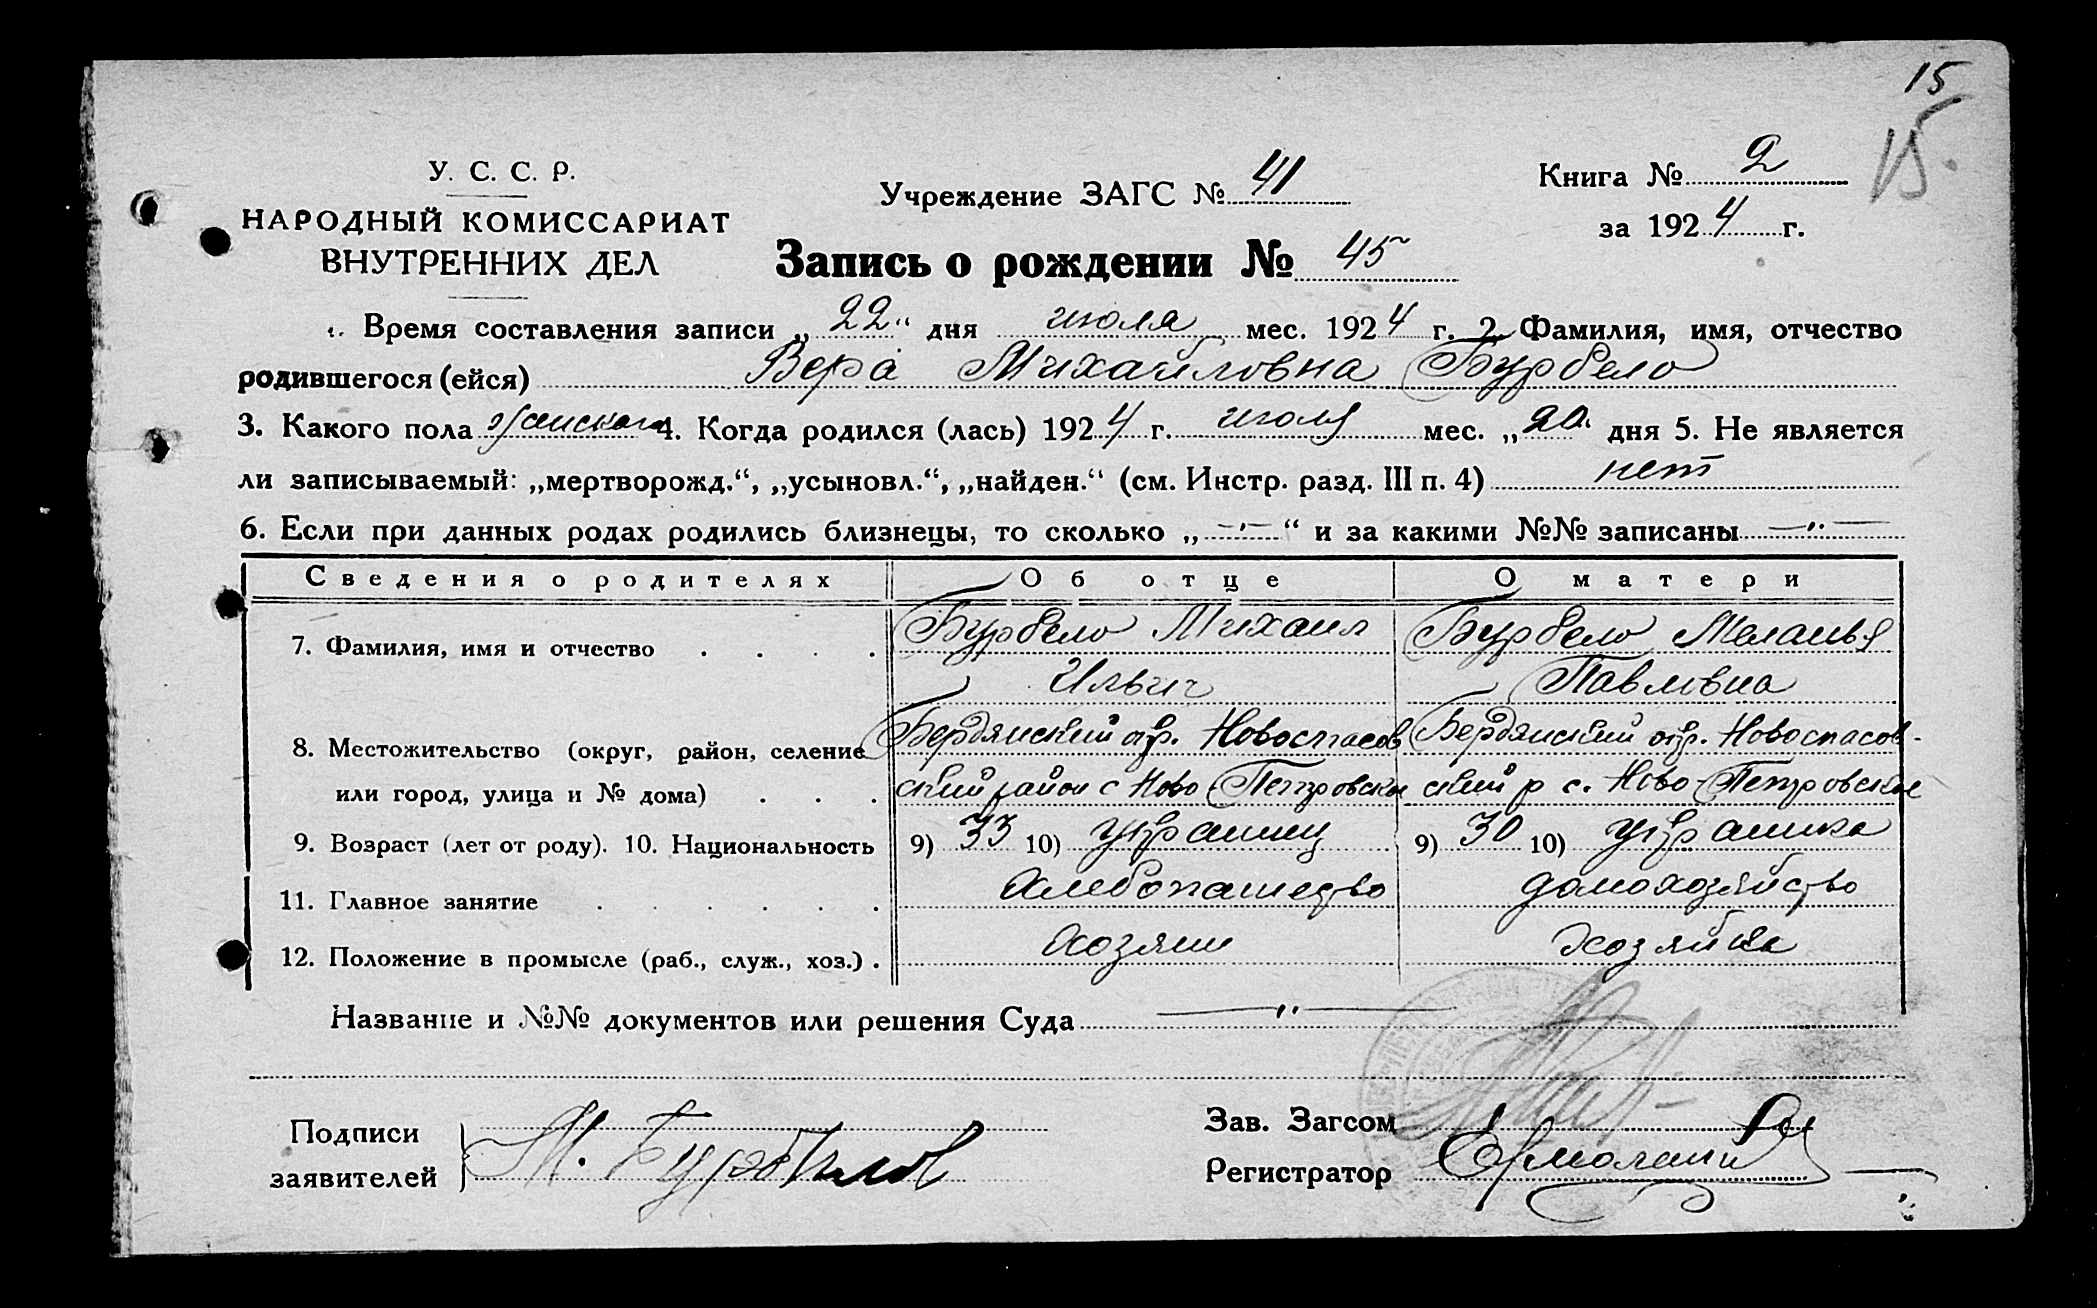 15
15.
У. С. С. Р.
НАРОДНЫЙ КОМИССАРИАТ
ВНУТРЕННИХ ДЕЛ
Учреждение ЗАГС № 41
Книга № 2
за 1924 г.
Запись о рождении № 45
1. Время составления записи „22“ дня июля мес. 1924 г. 2. Фамилия, имя, отчество
родившегося (ейся) Вера Михайловна Бурбело
3. Какого пола женского 4. Когда родился (лась) 1924 г. июля мес. „20“ дня 5. Не является
ли записываемый: „мертворожд.“, „усыновл.“, „найден.“ (см. Инстр. разд. III п. 4) нет
6. Если при данных родах родились близнецы, то сколько „ —"— “ и за какими №№ записаны —"—
Сведения о родителях Об отце О матери
7. Фамилия, имя и отчество . . . . Бурбело Михаил Бурбело Меланья
Ильич Павловна
8. Местожительство (округ, район, селение Бердянский окр. Новоспасов Бердянский окр. Новоспасов-
или город, улица и № дома) . . . ский район с Ново-Петровское ский р с. Ново-Петровское
9. Возраст (лет от роду). 10. Национальность 9) 33 10) украинец 9) 30 10) украинка
11. Главное занятие . . . . . . Хлебопашество домохозяйство
12. Положение в промысле (раб., служ., хоз.) . Хозяин Хозяйка
Название и №№ документов или решения Суда —"—
Подписи
заявителей
М. Бурбелов
Зав. Загсом
Регистратор